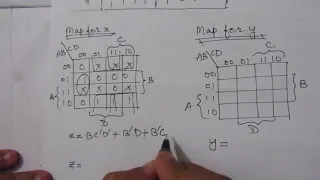 Map for x
Map for y
C
C
AB CD 00 01 11 10
AB CD 00 01 11 10
00 0 X X X
00
01 0 0
01
B
B
A
11 X 0 0
A
11
10 0 1 1 1
10
D
D
x = BC'D' + B'D + B'C
y =
z =